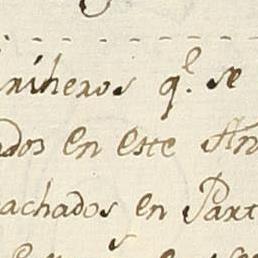 riñeros q.e se
ados en este An
achados en Part